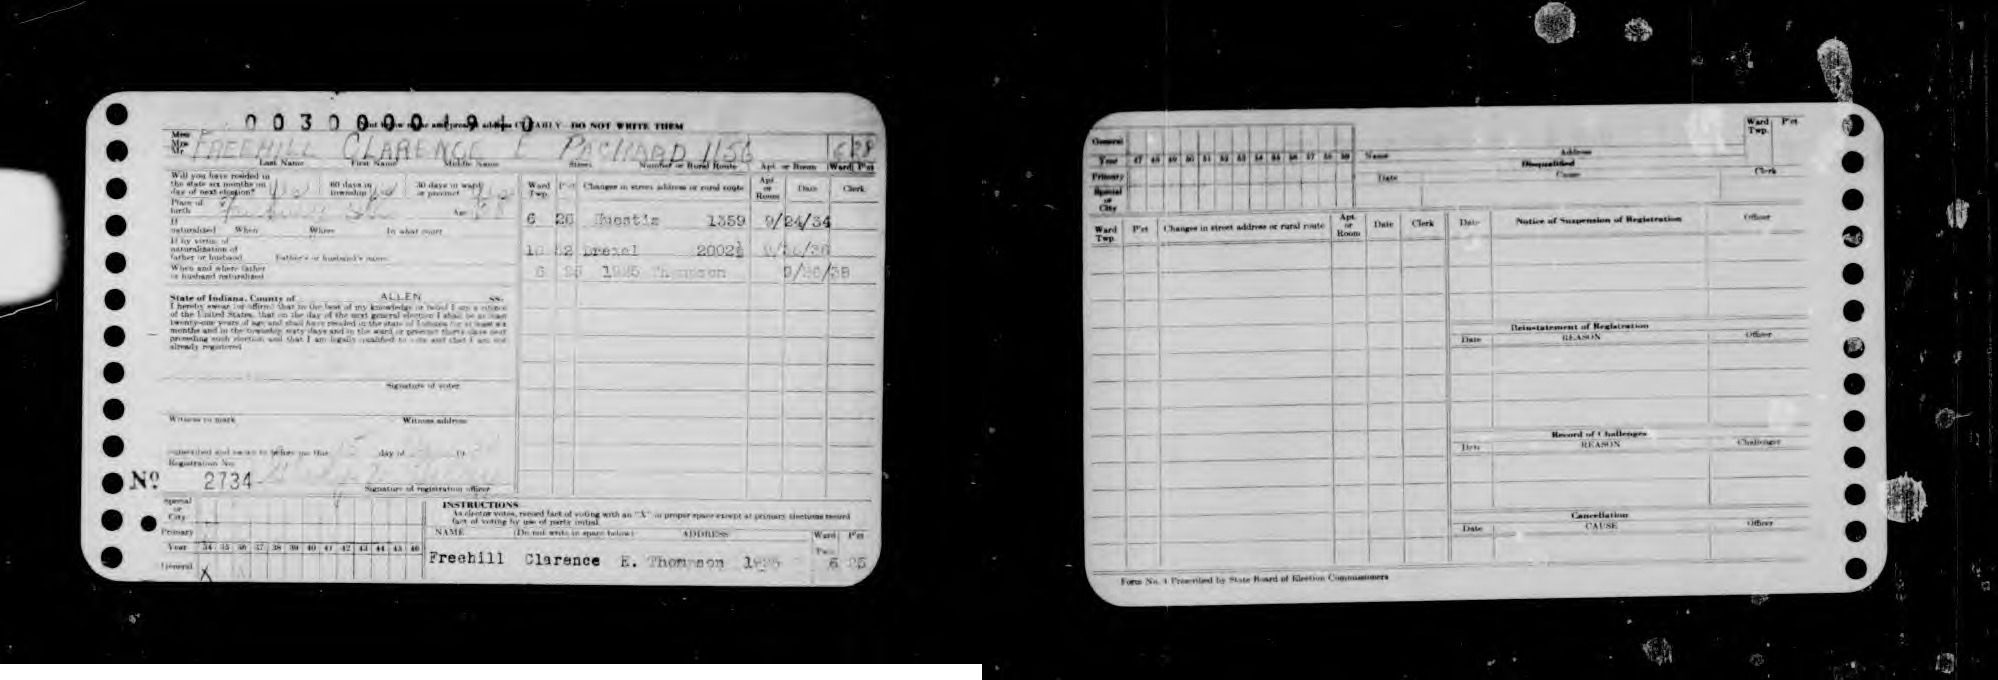 00300001910
DO NOT WRITE THEM
Mrs
Mr
FREEHILL CLARENCE E PACKARD 1156 6 28
Last Name First Name Middle Name Street Number or Rural Route Apt. or Room Ward P'ct
Will you have resided in
the state six months on
day of next election? yes
60 days in
township
30 days in ward
or precinct
Place of
birth
Age
If
naturalized When Where In what court
If by virtue of
naturalization of
father or husband Father's or husband's name
When and where father
or husband naturalized
State of Indiana, County of ALLEN SS:
I hereby swear (or affirm) that to the best of my knowledge or belief I am a citizen
of the United States, that on the day of the next general election I shall be at least
twenty-one years of age and shall have resided in the state of Indiana for at least six
months and in the township sixty days and in the ward or precinct thirty days next
preceding such election and that I am legally qualified to vote and that I am not
already registered
Signature of voter
Witness to mark Witness address
Subscribed and sworn to before me this 15 day of 19
Registration No.
Nº 2734
Signature of registration officer
Ward Twp. P'ct Changes in street address or rural route Apt. or Room Date Clerk
6 26 Huestis 1359 9/24/34
Drexel 2002½
6 25 1925 Thompson 9/26/38
Special
or
City
Primary
Year 34 35 36 37 38 39 40 41 42 43 44 45 46
General X
INSTRUCTIONS
As elector votes, record fact of voting with an "X" in proper space except at primary elections record
fact of voting by use of party initial.
NAME (Do not write in space below) ADDRESS Ward P'ct
Twp.
Freehill Clarence E. Thompson 1925 6 25
General
Year 47 48 49 50 51 52 53 54 55 56 57 58 59
Primary
Special
or
City
Name Address
Ward
Twp. P'ct
Disqualified
Date Cause Clerk
Ward
Twp. P'ct Changes in street address or rural route Apt. or Room Date Clerk
Date Notice of Suspension of Registration Officer
Reinstatement of Registration
Date REASON Officer
Record of Challenges
Date REASON Challenger
Cancellation
Date CAUSE Officer
Form No. 4 Prescribed by State Board of Election Commissioners